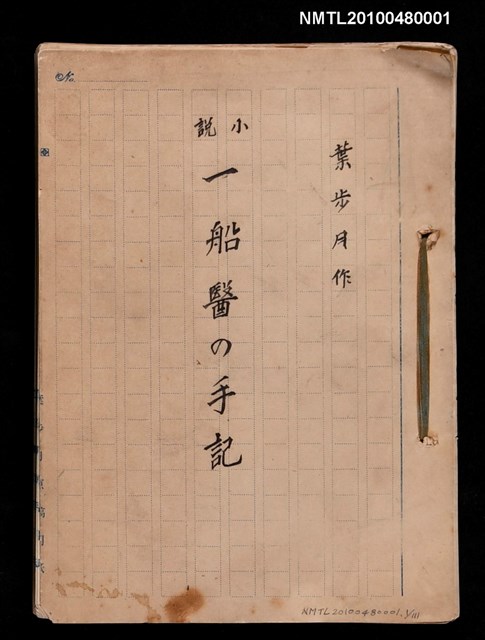 NMTL20100480001
葉步月作
小說
一船醫の手記
NMTL20100480001-1/111